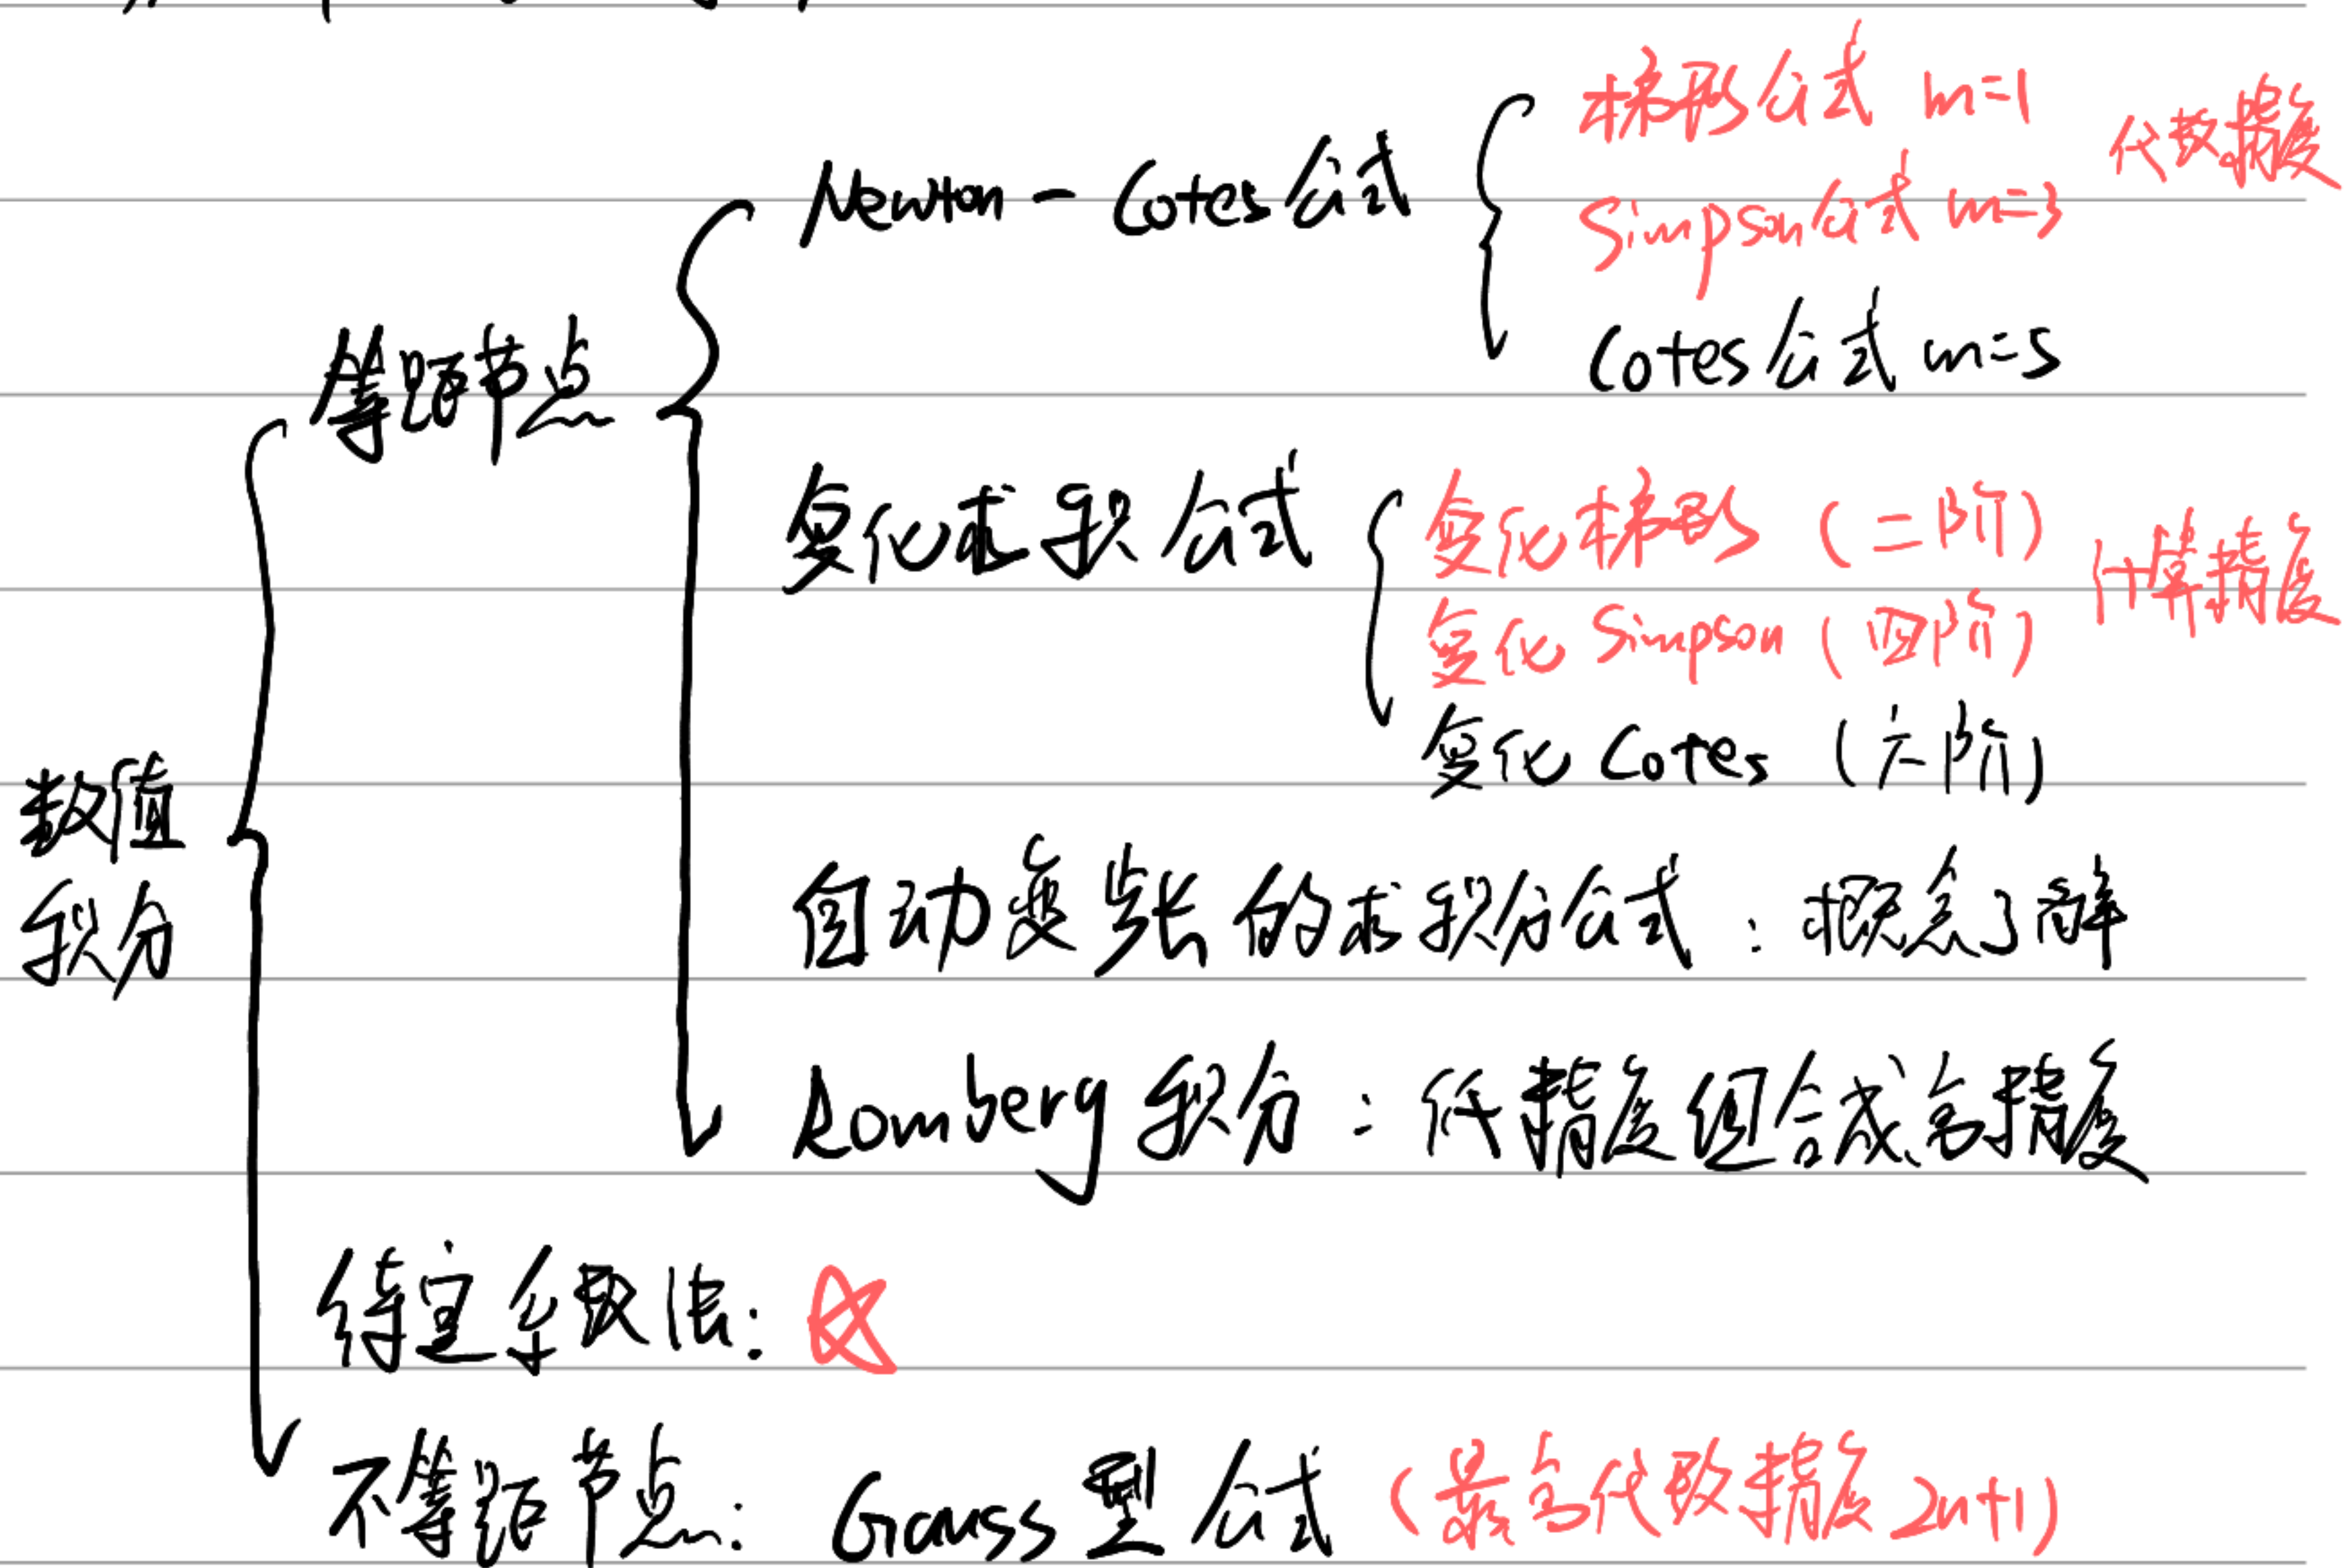 梯形公式 m=1
代数精度
Newton - Cotes公式
Simpson公式 m=3
Cotes公式 m=5
等距节点
复化求积公式
复化梯形 (二阶)
计算精度
复化 Simpson (四阶)
复化 Cotes (六阶)
数值
积分
自动变步长的求积分公式：概念了解
Romberg 积分：低精度组合成高精度
待定系数法：
不等距节点： Gauss型公式 (最高代数精度 2n+1)